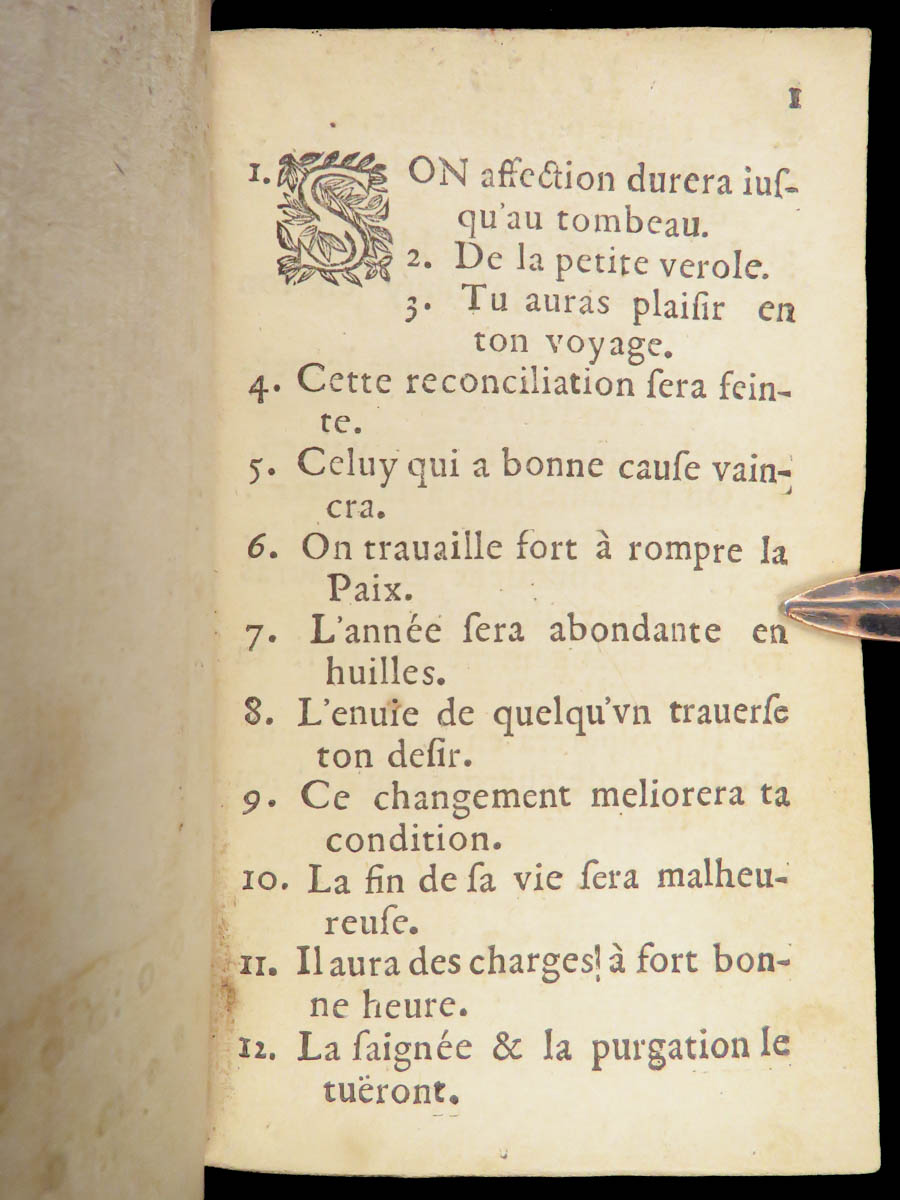 1
1. SON affection durera iuſ-
qu'au tombeau.
2. De la petite verole.
3. Tu auras plaiſir en
ton voyage.
4. Cette reconciliation ſera fein-
te.
5. Celuy qui a bonne cauſe vain-
cra.
6. On trauaille fort à rompre la
Paix.
7. L'année ſera abondante en
huilles.
8. L'enuie de quelqu'vn trauerſe
ton deſir.
9. Ce changement meliorera ta
condition.
10. La fin de ſa vie ſera malheu-
reuſe.
11. Il aura des charges à fort bon-
ne heure.
12. La ſaignée & la purgation le
tuëront.